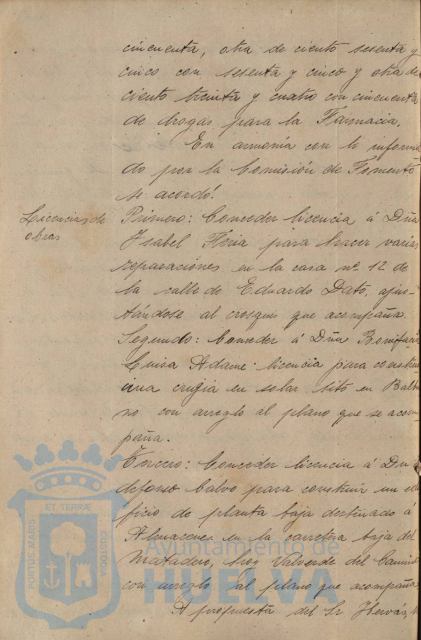 cincuenta, otra de ciento sesenta y
cinco con sesenta y cinco y otra de
ciento treinta y cuatro con cincuenta
de drogas para la Farmacia.
En armonía con lo informa
do por la Comisión de Fomento
se acordó:
Licencias de
obras
Primero: Conceder licencia á Dña
Isabel Feria para hacer varias
reparaciones en la casa nº 12 de
la calle de Eduardo Dato, ajus-
tándose al croquis que acompaña.
Segundo: Conceder á Dña Bonifacia
Luisa Adame licencia para construir
una crugía en solar sito en Balbu
no con arreglo al plano que se acom
paña.
Tercero: Conceder licencia á Dn
defonso Calvo para construir un edi
ficio de planta baja destinado á
Almacenes en la carretera baja del
Matadero, hoy Valverde del Camino
con arreglo al plano que acompaña
A propuesta del Sr Hervás,
PORTUS MARIS
ET TERRÆ
CUSTODIA
Ayuntamiento de
HUELVA